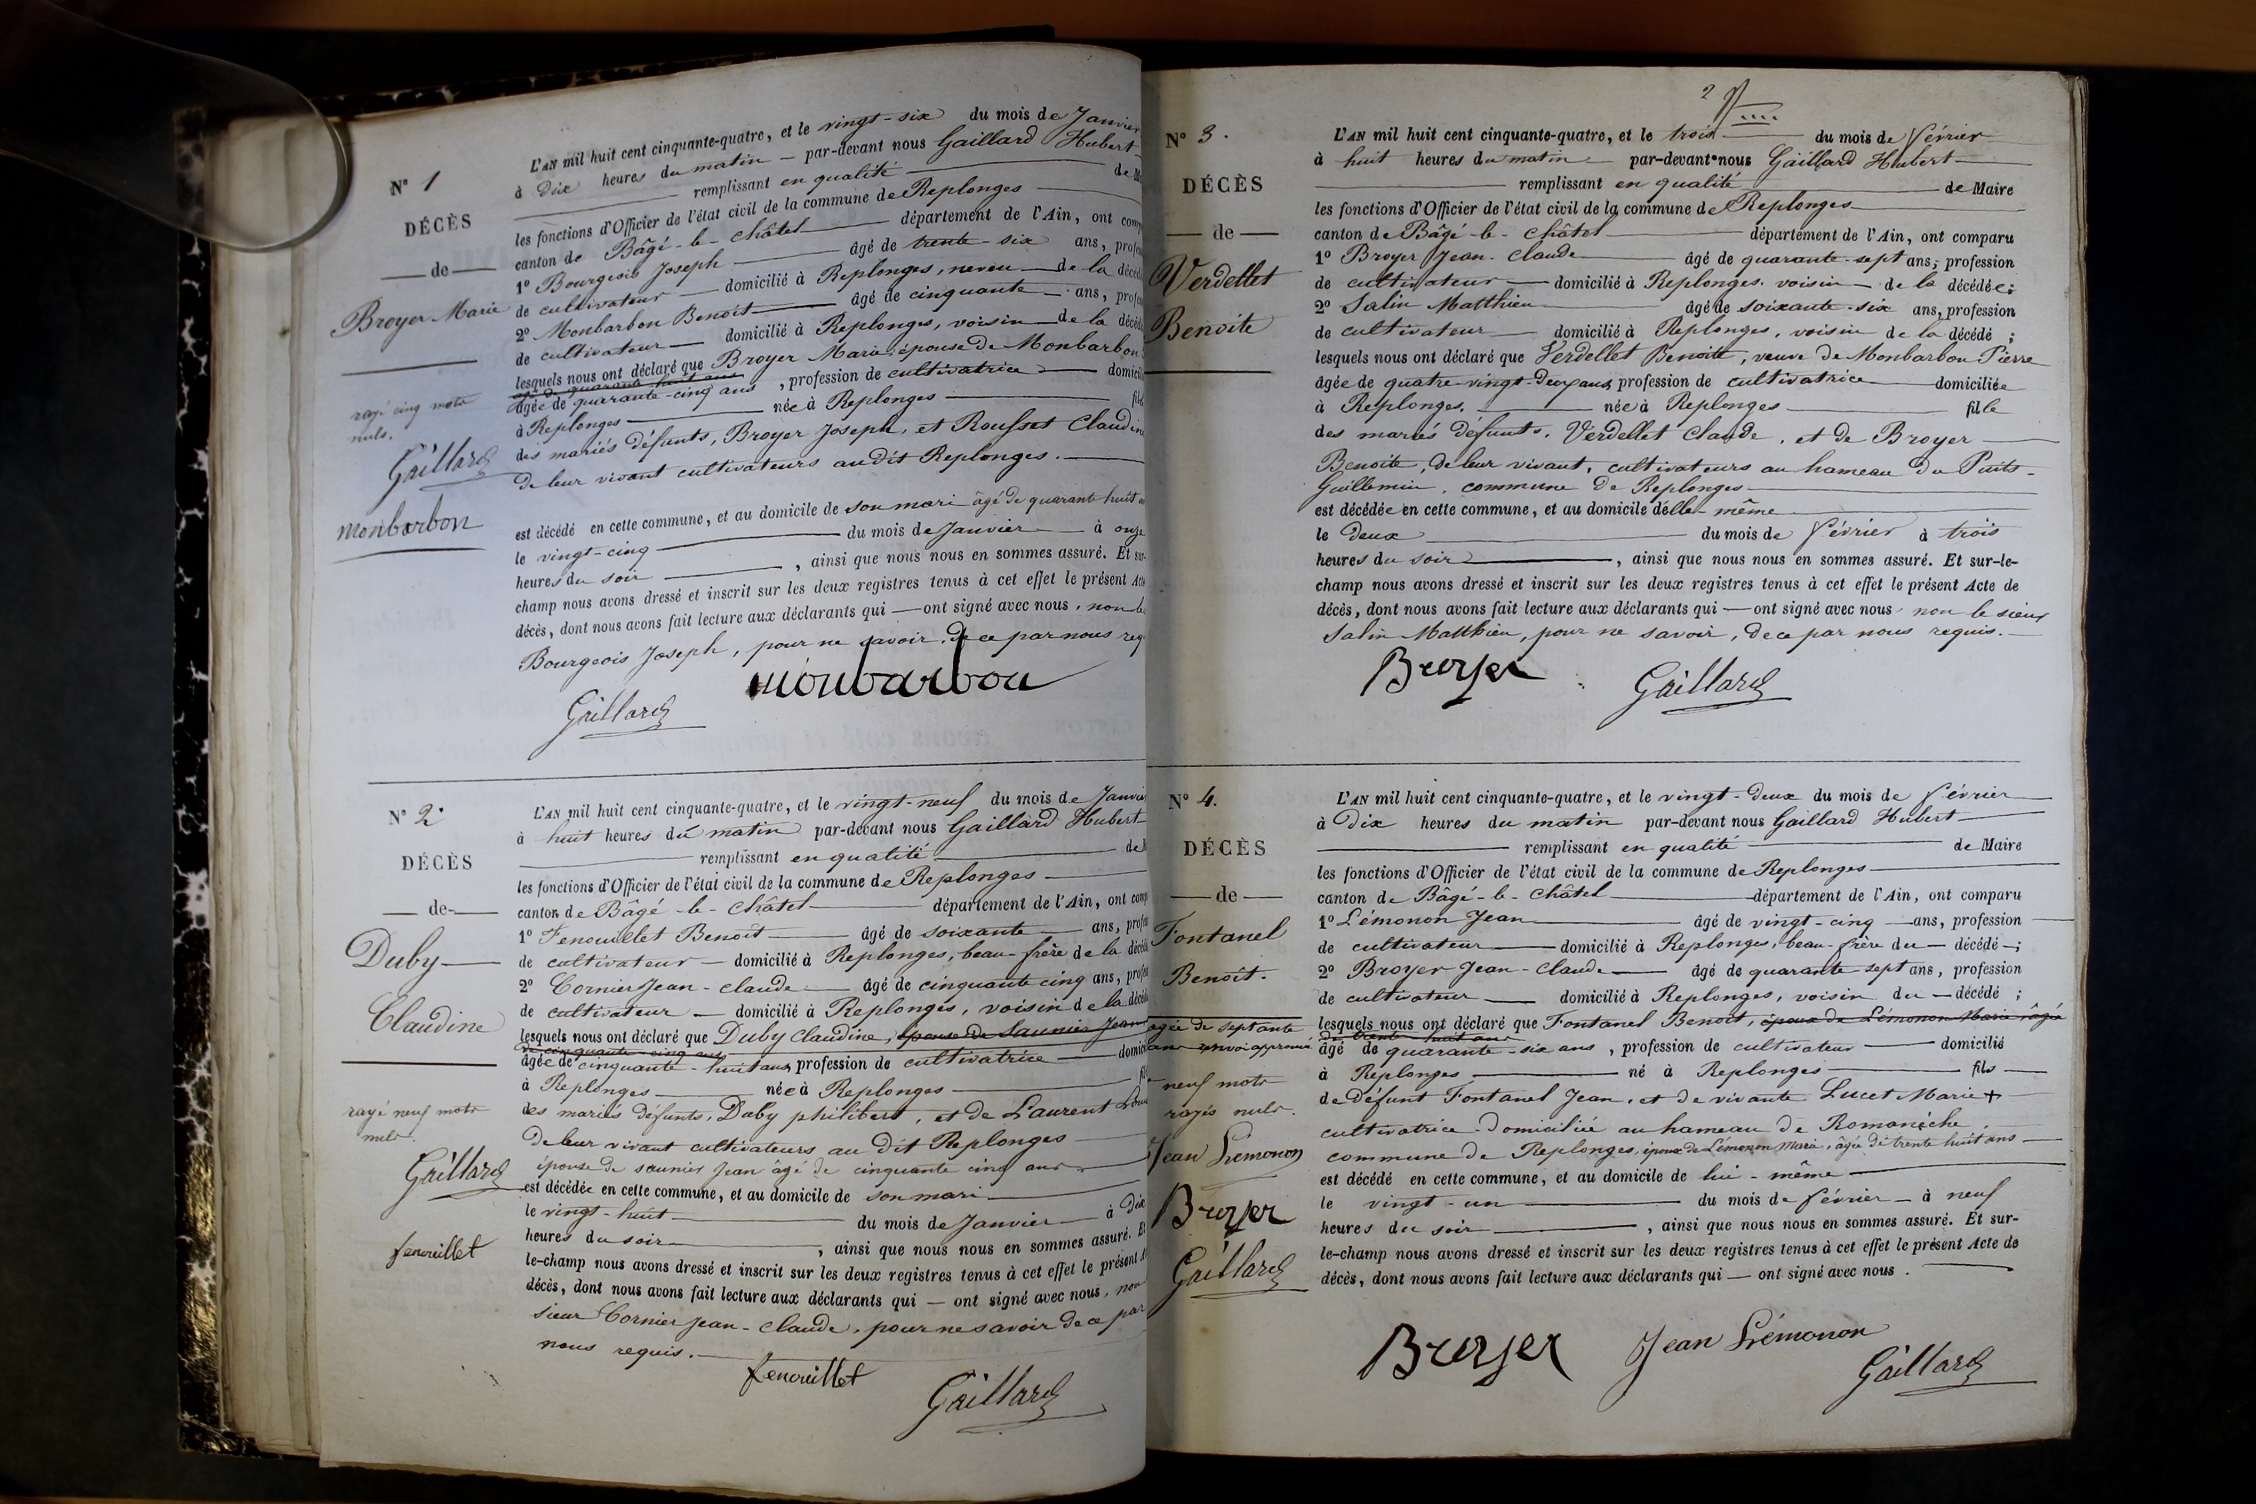 N° 1
DÉCÈS
de
Broyer Marie
rayé cinq mots
nuls.
Gaillard
monbarbon
L'AN mil huit cent cinquante-quatre, et le vingt-six du mois de Janvier
à dix heures du matin par-devant nous Gaillard Hubert
remplissant en qualité de
les fonctions d'Officier de l'état civil de la commune de Replonges
canton de Bâgé-le-Châtel département de l'Ain, ont
1° Bourgeois Joseph âgé de trente-six ans,
de cultivateur domicilié à Replonges, neveu de la
2° Monbarbon Benoit âgé de cinquante ans,
de cultivateur domicilié à Replonges, voisin de la
lesquels nous ont déclaré que Broyer Marie, épouse de Monbarbon
âgé de quarante huit ans
âgée de quarante-cinq ans, profession de cultivatrice
à Replonges née à Replonges
des mariés défunts, Broyer Joseph, et Rousset Claudine
de leur vivant cultivateurs audit Replonges.
est décédé en cette commune, et au domicile de son mari âgé de quarante huit
le vingt-cinq du mois de Janvier à onze
heures du soir, ainsi que nous nous en sommes assuré. Et sur-
champ nous avons dressé et inscrit sur les deux registres tenus à cet effet le présent Acte
décès, dont nous avons fait lecture aux déclarants qui — ont signé avec nous, non
Bourgeois Joseph, pour ne savoir, de ce par nous
monbarbon
Gaillard
N° 2.
DÉCÈS
de
Duby
Claudine
rayé neuf mots
nuls.
Gaillard
fenouillet
L'AN mil huit cent cinquante-quatre, et le vingt-neuf du mois de Janvier
à huit heures du matin par-devant nous Gaillard Hubert
remplissant en qualité de
les fonctions d'Officier de l'état civil de la commune de Replonges
canton de Bâgé-le-Châtel département de l'Ain, ont
1° Fenouillet Benoit âgé de soixante ans,
de cultivateur domicilié à Replonges, beau-frère de la
2° Cornier Jean-Claude âgé de cinquante cinq ans,
de cultivateur domicilié à Replonges, voisin de la
lesquels nous ont déclaré que Duby Claudine, épouse de Saunier Jean
de cinquante-cinq ans
âgée de cinquante-huit ans, profession de cultivatrice
à Replonges née à Replonges
des mariés défunts, Duby philibert, et de Laurent
de leur vivant cultivateurs au dit Replonges
épouse de saunier Jean âgé de cinquante cinq ans
est décédée en cette commune, et au domicile de son mari
le vingt-huit du mois de Janvier à dix
heures du soir, ainsi que nous nous en sommes assuré. Et
le-champ nous avons dressé et inscrit sur les deux registres tenus à cet effet le présent
décès, dont nous avons fait lecture aux déclarants qui — ont signé avec nous, non
sieur Cornier Jean-Claude, pour ne savoir de ce par
nous requis.
fenouillet
Gaillard
2
N° 3.
DÉCÈS
de
Verdellet
Benoite
L'AN mil huit cent cinquante-quatre, et le trois du mois de Février
à huit heures du matin par-devant nous Gaillard Hubert
remplissant en qualité de Maire
les fonctions d'Officier de l'état civil de la commune de Replonges
canton de Bâgé-le-Châtel département de l'Ain, ont comparu
1° Broyer Jean-Claude âgé de quarante-sept ans, profession
de cultivateur domicilié à Replonges, voisin de la décédée;
2° Salin Matthieu âgé de soixante-six ans, profession
de cultivateur domicilié à Replonges, voisin de la décédé;
lesquels nous ont déclaré que Verdellet Benoite, veuve de Monbarbon Pierre
âgée de quatre vingt-deux ans, profession de cultivatrice domiciliée
à Replonges. née à Replonges fille
des mariés défunts, Verdellet Claude, et de Broyer
Benoite, de leur vivant, cultivateurs au hameau du Puits-
Guillemin, commune de Replonges
est décédée en cette commune, et au domicile d'elle-même
le deux du mois de Février à trois
heures du soir, ainsi que nous nous en sommes assuré. Et sur-le-
champ nous avons dressé et inscrit sur les deux registres tenus à cet effet le présent Acte de
décès, dont nous avons fait lecture aux déclarants qui — ont signé avec nous, non le sieur
Salin Matthieu, pour ne savoir, de ce par nous requis.
Broyer
Gaillard
N° 4.
DÉCÈS
de
Fontanel
Benoit.
agée de septante
ans renvoi approuvé
neuf mots
rayés nuls.
Jean Lémonon
Broyer
Gaillard
L'AN mil huit cent cinquante-quatre, et le vingt-deux du mois de Février
à dix heures du matin par-devant nous Gaillard Hubert
remplissant en qualité de Maire
les fonctions d'Officier de l'état civil de la commune de Replonges
canton de Bâgé-le-Châtel département de l'Ain, ont comparu
1° Lémonon Jean âgé de vingt-cinq ans, profession
de cultivateur domicilié à Replonges, beau-frère du décédé;
2° Broyer Jean-Claude âgé de quarante-sept ans, profession
de cultivateur domicilié à Replonges, voisin du décédé;
lesquels nous ont déclaré que Fontanel Benoit, époux de Lémonon Marie âgée
de trente-huit ans
âgé de quarante-six ans, profession de cultivateur domicilié
à Replonges né à Replonges fils
de défunt Fontanel Jean, et de vivante Lucet Marie +
cultivatrice domiciliée au hameau de Romanèche
commune de Replonges, époux de Lémonon Marie, âgée de trente huit ans
est décédé en cette commune, et au domicile de lui-même
le vingt-un du mois de Février à neuf
heures du soir, ainsi que nous nous en sommes assuré. Et sur-
le-champ nous avons dressé et inscrit sur les deux registres tenus à cet effet le présent Acte de
décès, dont nous avons fait lecture aux déclarants qui — ont signé avec nous.
Broyer
Jean Lémonon
Gaillard